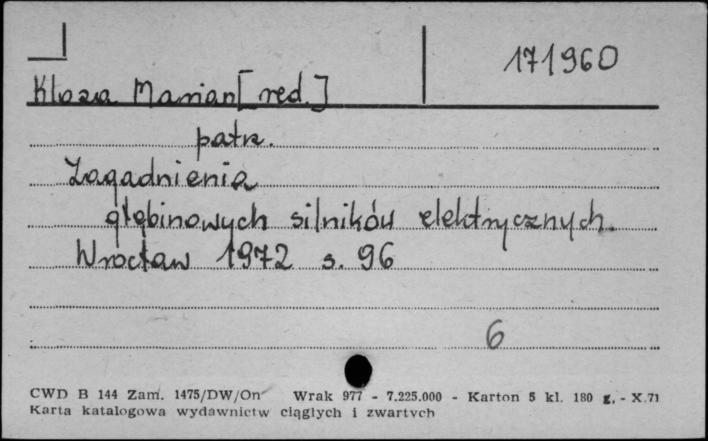 171960
Kloza Marian [red.]
patrz.
Zagadnienia
głębinowych silników elektrycznych.
Wrocław 1972 s. 96
6
CWD B 144 Zam. 1475/DW/On Wrak 977 - 7.225.000 - Karton 5 kl. 180 g. - X.71
Karta katalogowa wydawnictw ciągłych i zwartych